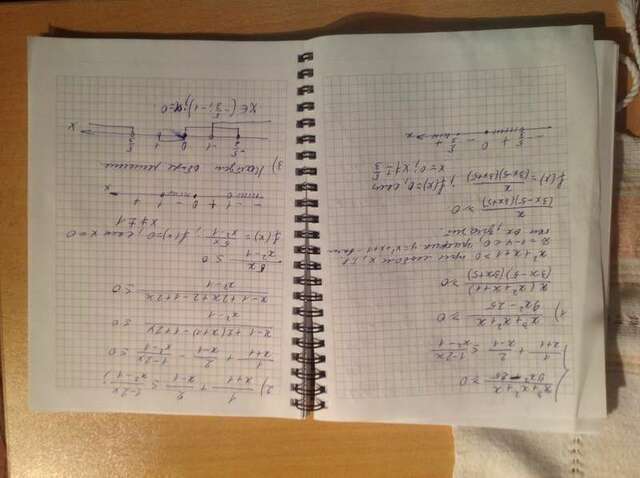 x³+x²+x / 9x²-25 ≥0
1/x+1 + 2/x-1 ≤ 1-2x/x²-1
1) x³+x²+x / 9x²-25 ≥0
x(x²+x+1) / (3x-5)(3x+5) ≥0
x²+x+1>0 при любом x, т.к
D=1-4<0, график y=x²+x+1 выше
оси ox, значит.
x / (3x-5)(3x+5) ≥0
f(x)= x / (3x-5)(3x+5) ; f(x)=0, если
x=0; x≠± 5/3
- -5/3 + 0 - 5/3 + x
2) 1/x+1 + 2/x-1 ≤ 1-2x/x²-1
1/x+1 + 2/x-1 - 1-2x/x²-1 ≤0
x-1+2(x+1)-1+2x / x²-1 ≤0
x-1+2x+2-1+2x / x²-1 ≤0
5x / x²-1 ≤0
f(x)= 5x / x²-1 , f(x)=0, если x=0
x≠±1
- -1 + 0 - 1 + x
3) Найдём общее решение
-5/3 -1 0 1 5/3 x
x∈(-5/3;-1); x=0